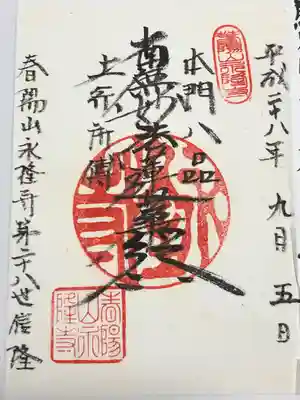 平成二十八年 九月 五日
本門八品
上行所傳
南無妙法蓮華経
春陽山永隆寺第二十八世信隆
春陽
山永
隆寺